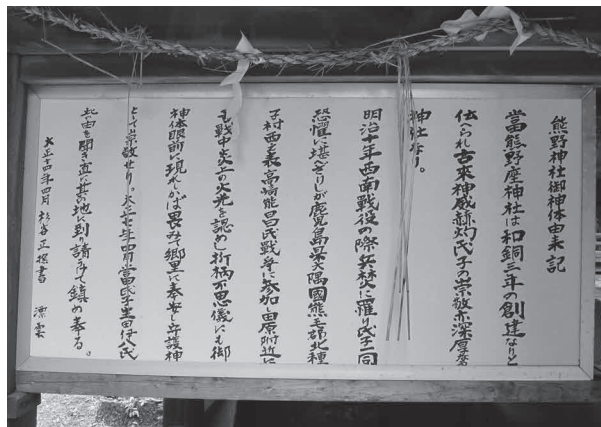 熊野神社御神体由来記
當熊野座神社は和銅三年の創建なりと
伝られ古来神威赫灼氏子の崇敬亦深厚
神社なり。
明治十年西南戦役の際兵焚に罹り氏子一同
恐懼に堪ざりしが鹿児島県大隅國熊毛郡北種
子村西之表高崎能昌氏戦芳に参加し田原附近に
も戦中炎上の火光を認めし折柄不思儀にも御
神体眼前に現れしかば畏みて郷里に奉安し守護神
として崇敬せり。大正十年四月當区氏子生田伊八氏
此の由を聞き直に其の地に到り請ふて鎮め奉る。
大正十四年四月 正 書